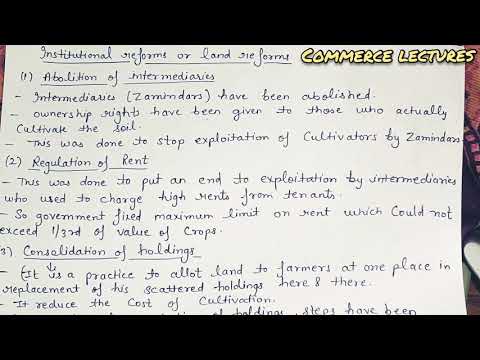 Institutional reforms or land reforms
COMMERCE LECTURES
(1) Abolition of Intermediaries
- Intermediaries (Zamindars) have been abolished.
- ownership rights have been given to those who actually
Cultivate the soil.
- This was done to stop exploitation of Cultivators by Zamindars
(2) Regulation of Rent
- This was done to put an end to exploitation by intermediaries
who used to charge high rents from tenants.
- So government fixed maximum limit on rent which Could not
exceed 1/3rd of value of Crops.
3) Consolidation of holdings
- It is a practice to allot land to farmers at one place in
replacement of his scattered holdings here & there.
- It reduce the Cost of Cultivation.
of holdings, steps have been